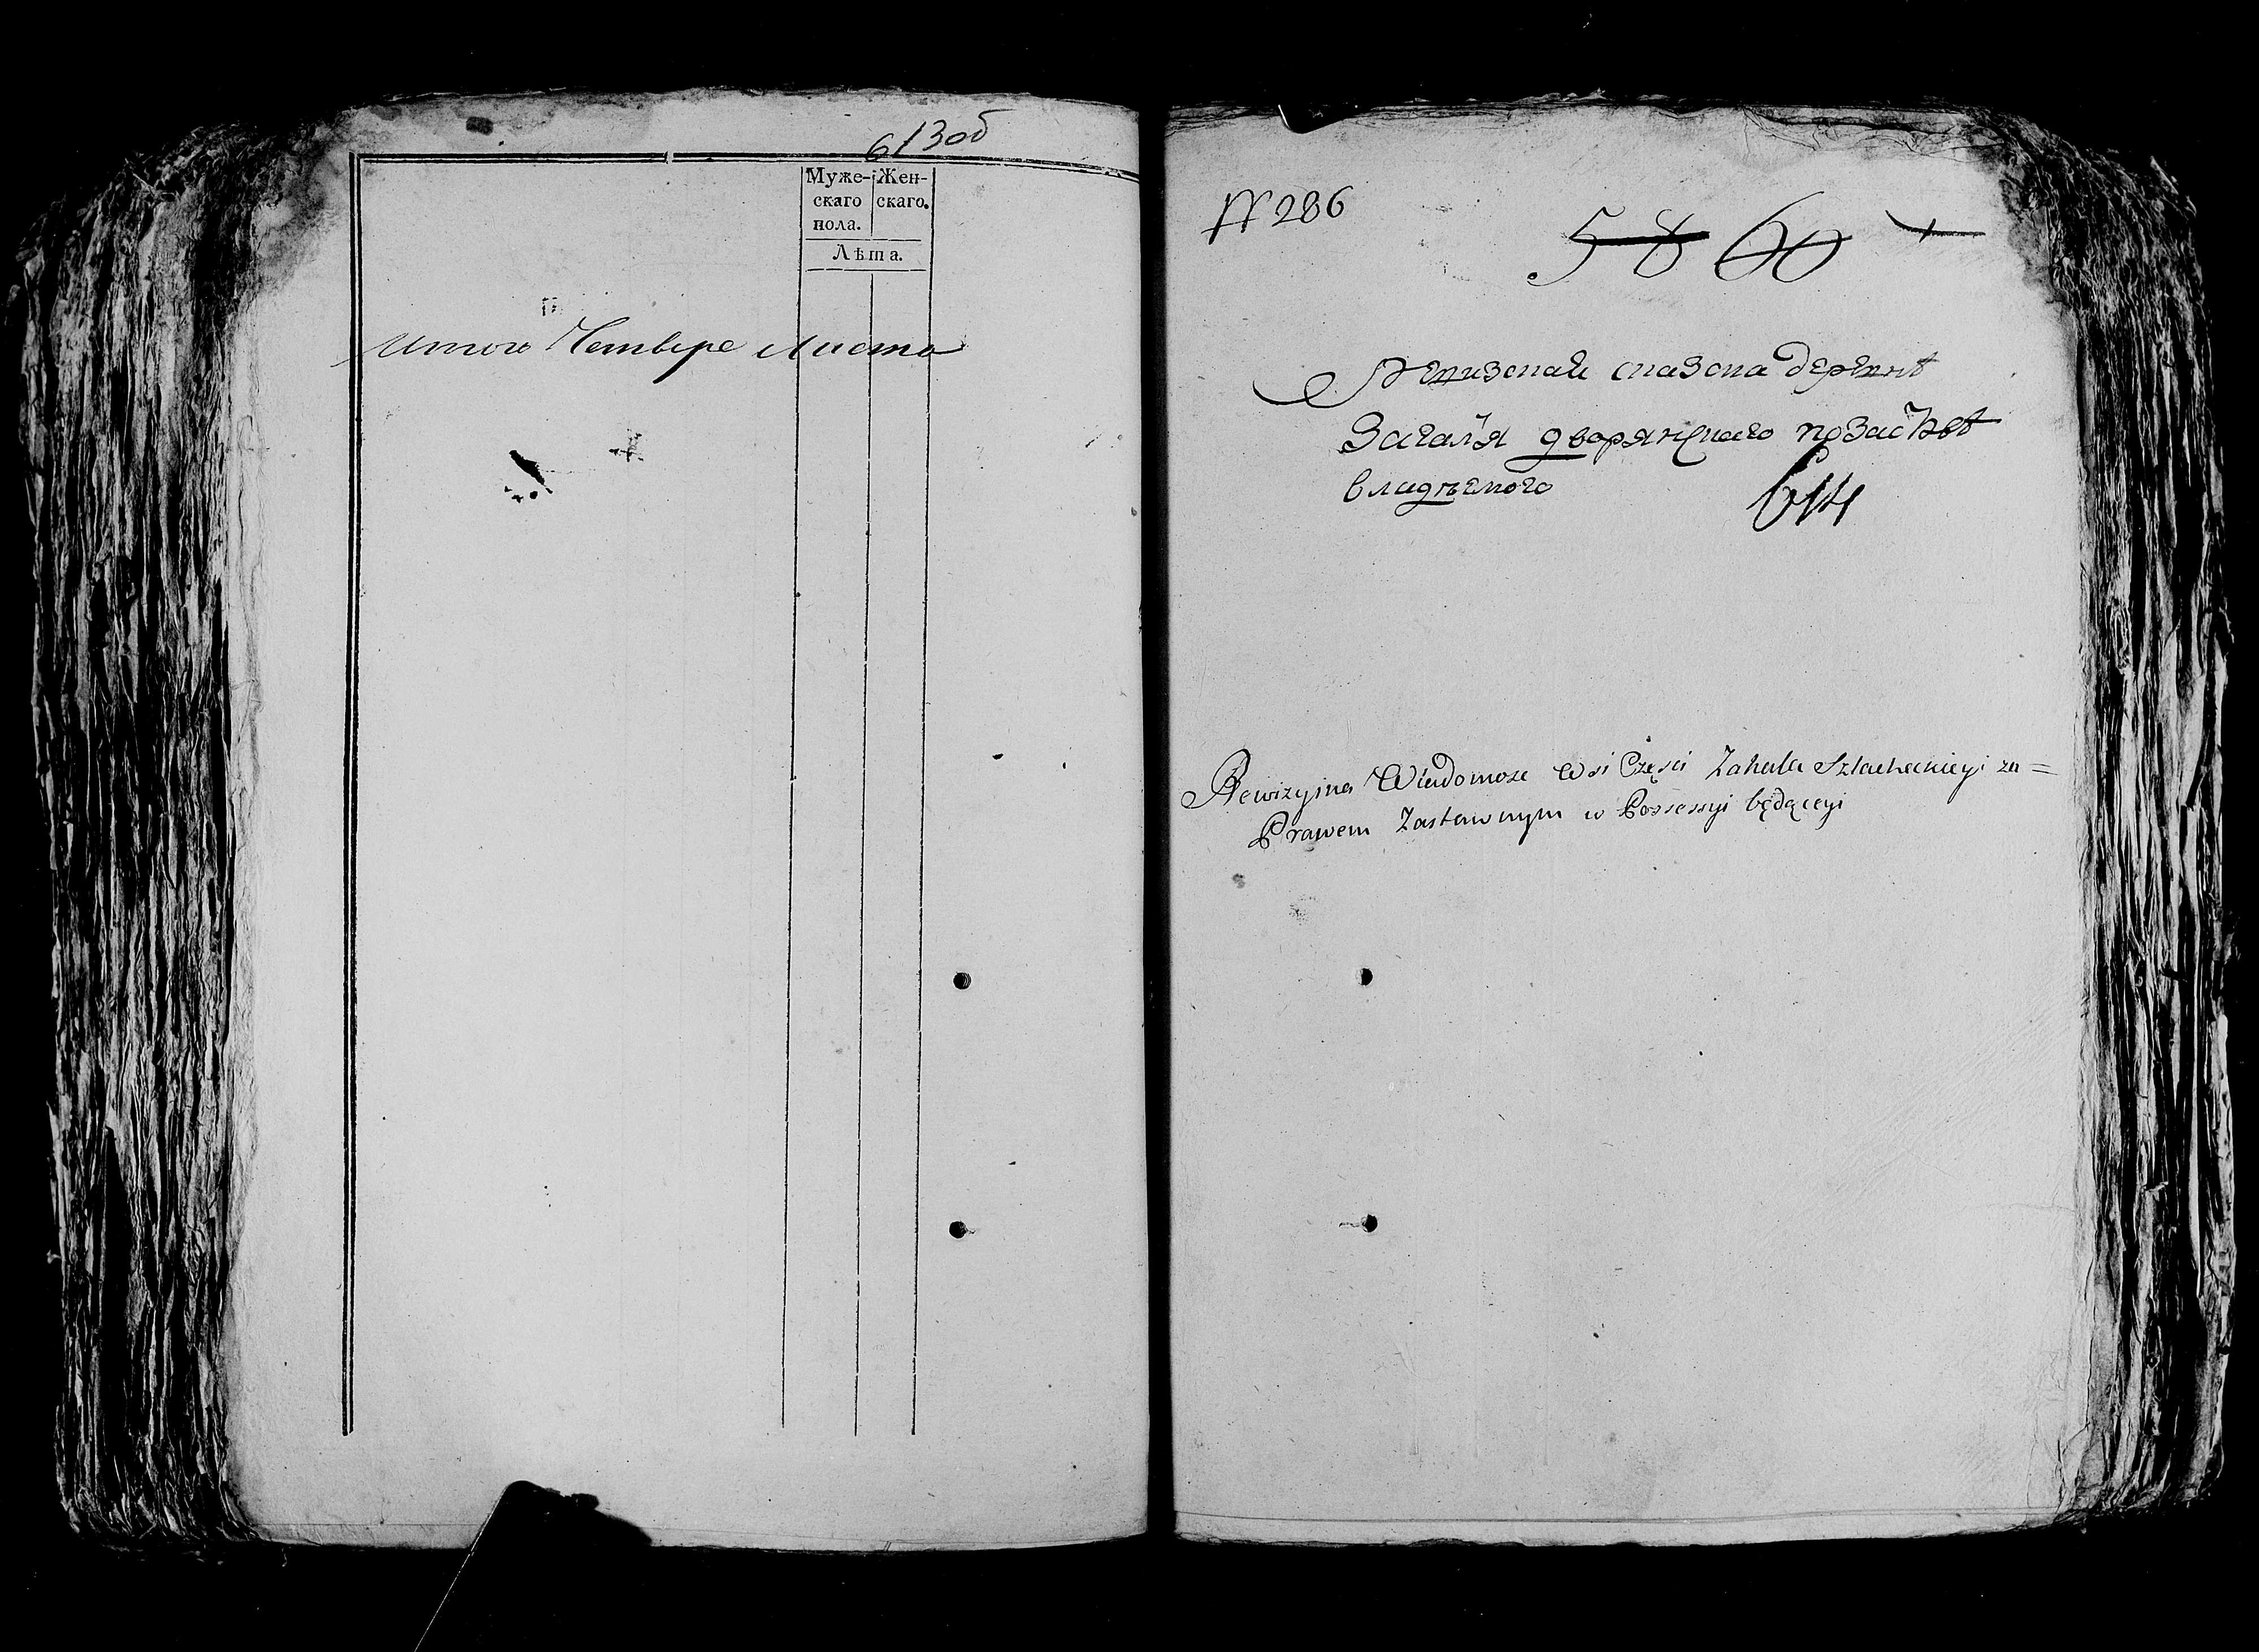 613об
Муже- Жен-
скаго скаго.
пола.
Лѣта.
Итого Четыре Листа
№ 286
58 60
Ревизская сказка деревнѣ
Загалья дворянскаго по
владѣемого
614
Rewizyina Wiadomosc wsi Części Zahala Szlacheckieyi za=
Prawem Zastawnym w Possessyi będąceyi